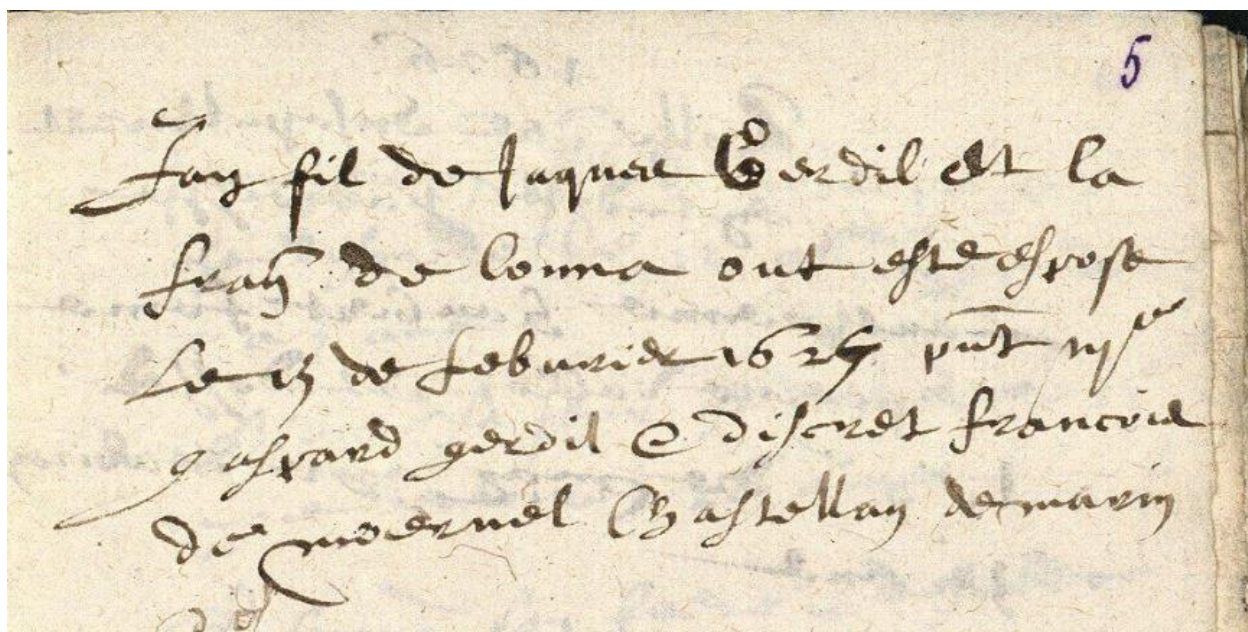 5
Jan fil de Jaques Gerdil et la
fran de Conna ont esté espose
Le 13 de feburier 1625 pnt m
gaspard gerdil & discret francois
de mernel Chastellan de marin